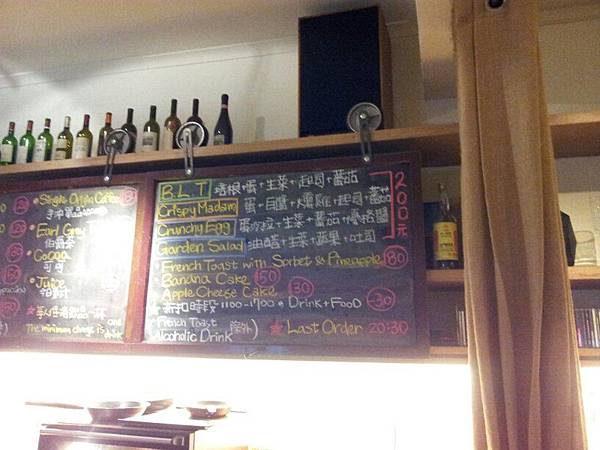 Single Origin Coffee
Earl Grey
伯爵茶
Cocoa
可可
Juice
The minimum charge is one drink
B.L.T 培根+蛋+生菜+起司+蕃茄
Crispy Madam 蛋+白醬+燻雞+起司+蕃茄
Crunchy Egg 蛋沙拉+生菜+蕃茄+優格醬
Garden Salad 油醋+生菜+蔬果+吐司
200元
French Toast with Sorbet & Pineapple 180
Banana Cake 50
Apple Cheese Cake 130
★折扣時段 1100-1700 Drink+Food -30
French Toast
Alcoholic Drink 除外
★Last Order 20:30